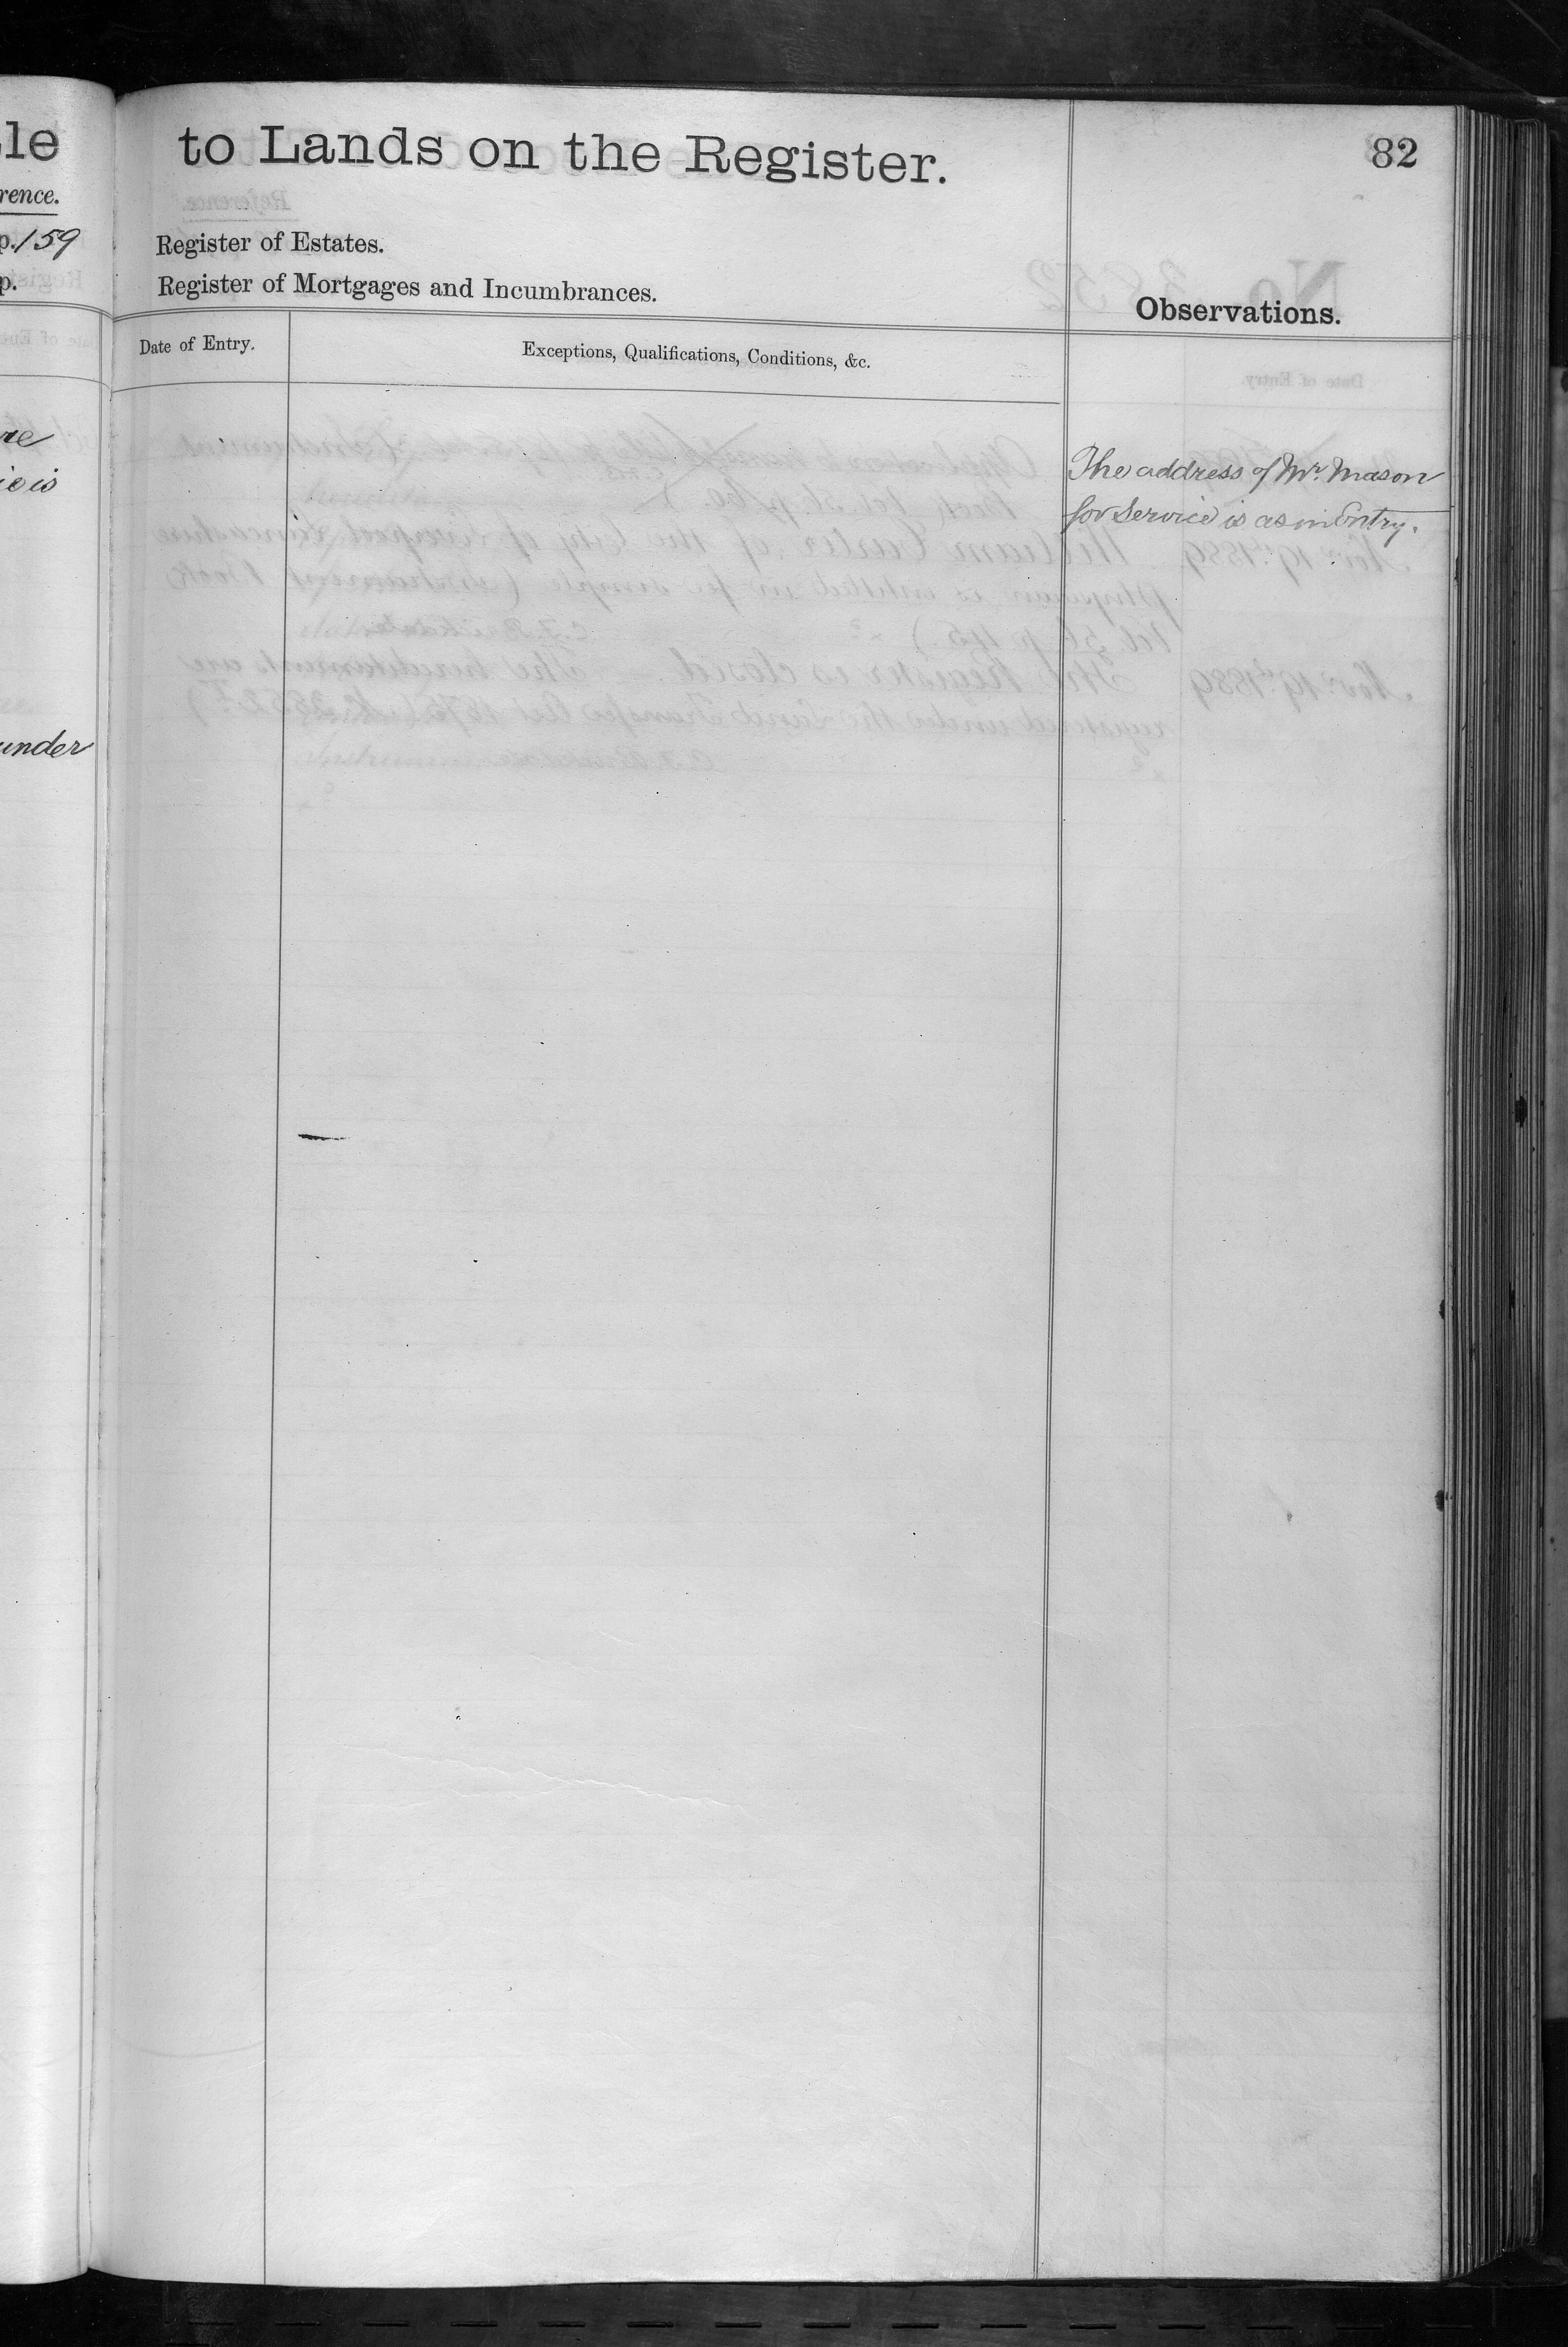 le
rence.
p. 159
p.
re
ice is
under
to Lands on the Register.
82
Register of Estates.
Register of Mortgages and Incumbrances.
Observations.
Date of Entry.
Exceptions, Qualifications, Conditions, &c.
The address of Mr. Mason
for Service is as in Entry.